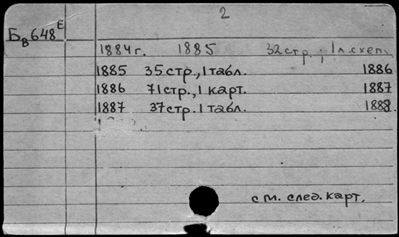 2
Бв648Е
1884г. 1885 32стр.; 1л.схем.
1885 35стр., 1табл. 1886
1886 71стр., 1 карт. 1887
1887 37стр. 1табл. 1888.
см. след. карт.